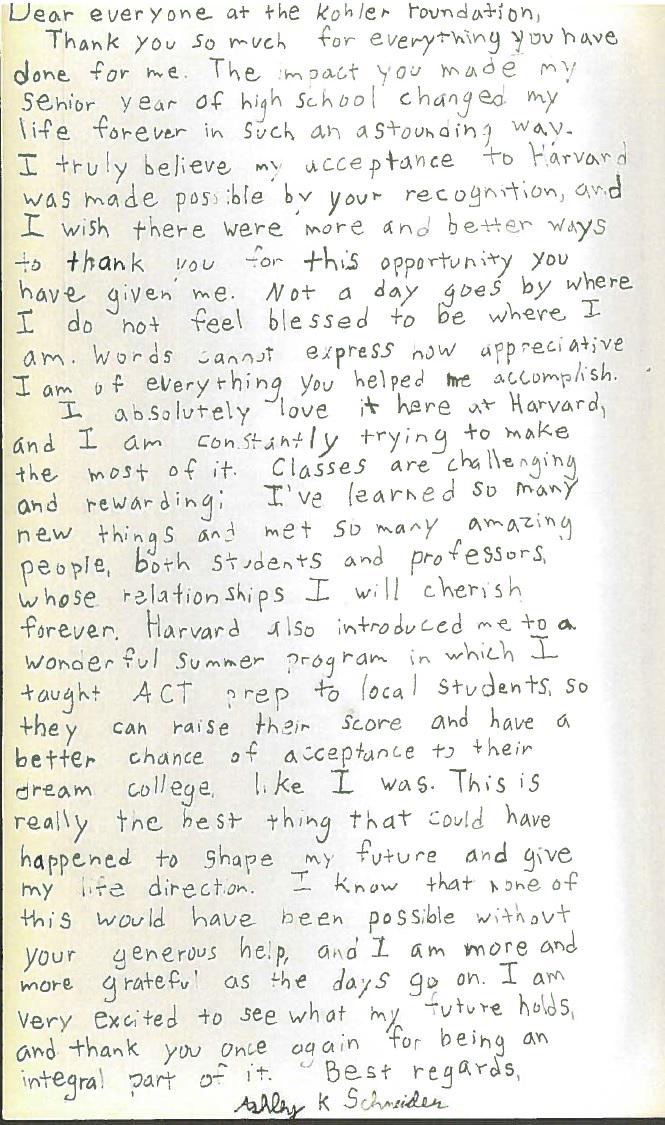 Dear everyone at the Kohler Foundation,
Thank you so much for everything you have
done for me. The impact you made my
senior year of high school changed my
life forever in such an astounding way.
I truly believe my acceptance to Harvard
was made possible by your recognition, and
I wish there were more and better ways
to thank you for this opportunity you
have given me. Not a day goes by where
I do not feel blessed to be where I
am. Words cannot express how appreciative
I am of everything you helped me accomplish.
I absolutely love it here at Harvard,
and I am constantly trying to make
the most of it. Classes are challenging
and rewarding; I've learned so many
new things and met so many amazing
people, both students and professors,
whose relationships I will cherish
forever. Harvard also introduced me to a
wonderful summer program in which I
taught ACT prep to local students, so
they can raise their score and have a
better chance of acceptance to their
dream college, like I was. This is
really the best thing that could have
happened to shape my future and give
my life direction. I know that none of
this would have been possible without
your generous help, and I am more and
more grateful as the days go on. I am
very excited to see what my future holds,
and thank you once again for being an
integral part of it. Best regards,
Ashley K Schneider